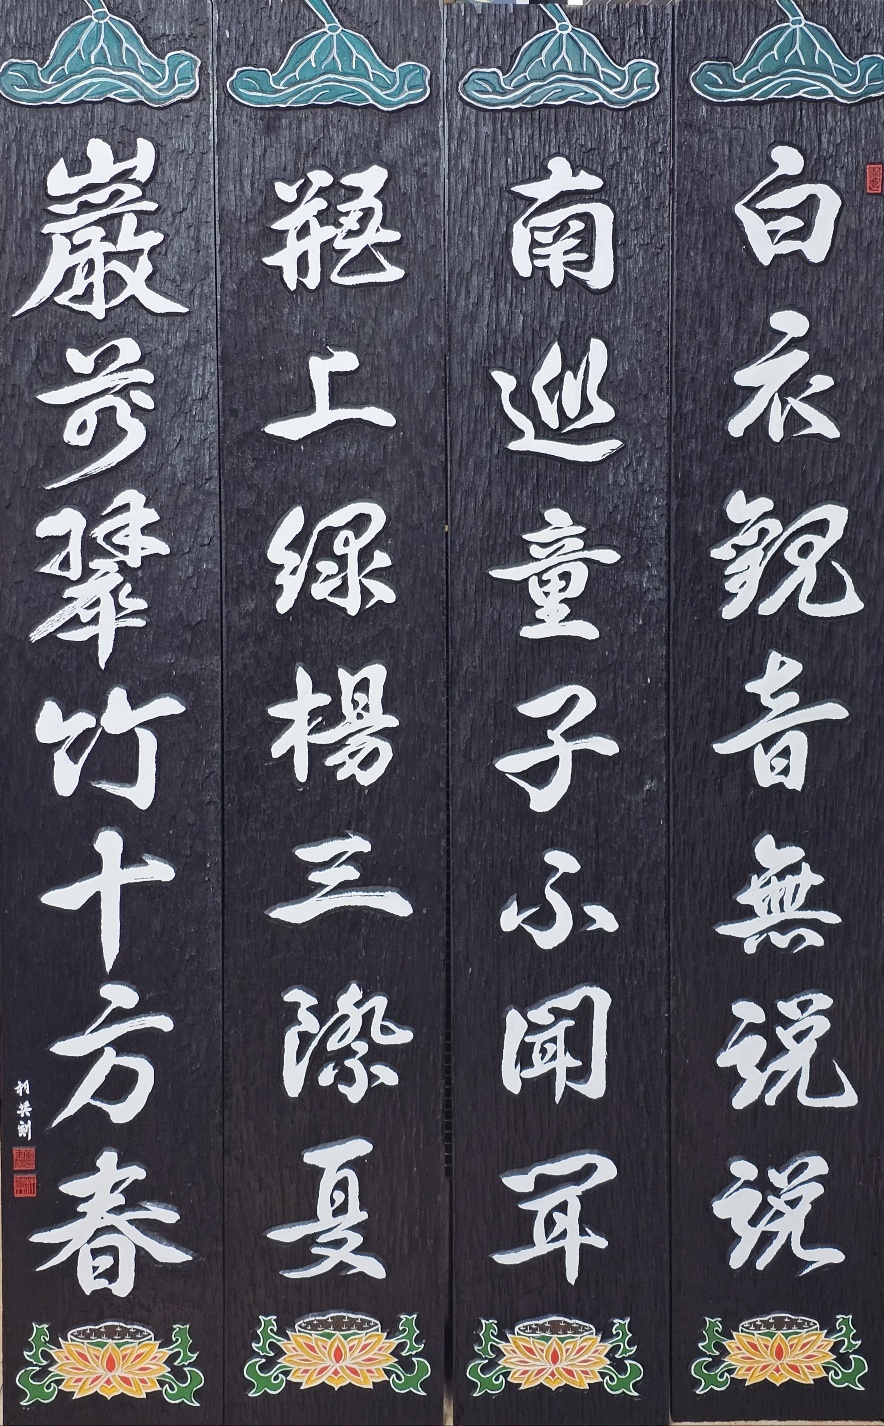 白衣觀音無說說
南巡童子不聞聞
瓶上綠楊三際夏
巖前翠竹十方春